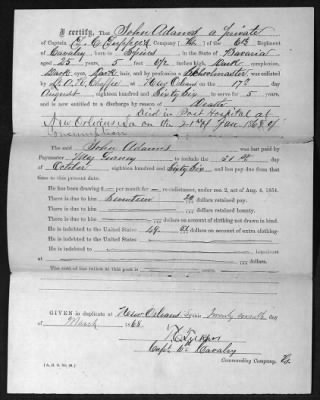 I certify, That John Adams a private
of Captain Company (H.) of the 6th Regiment
of Cavalry born in in the State of Bavaria
aged 25 years, 5 feet 6 1/2 inches high, Dark complexion,
Dark eyes, Dark hair, and by profession a Schoolmaster, was enlisted
by at New Orleans on the 17th day
August eighteen hundred and Sixty Six to serve for 5 years,
and is now entitled to a discharge by reason of Death
Died in Post Hospital at
New Orleans La on the of Jan 1868 of
Consumption
The said John Adams was last paid by
Paymaster Maj to include the 31st day
of October eighteen hundred and Sixty Six, and has pay due from that
time to the present date.
He has been drawing $ per month for re-enlistment, under sec. 2, act of Aug. 4, 1854.
There is due to him dollars retained pay.
There is due to him dollars retained bounty.
There is due to him dollars on account of clothing not drawn in kind.
He is indebted to the United States 49 dollars on account of extra clothing.
He is indebted to the United States
He is indebted to laundress
at dollars.
The cost of one ration at this post is cents.
GIVEN in duplicate at New Orleans this Twenty seventh day
of March 1868.
Capt 6th Cavalry
Commanding Company. H.
(A. G. O. No. 28.)